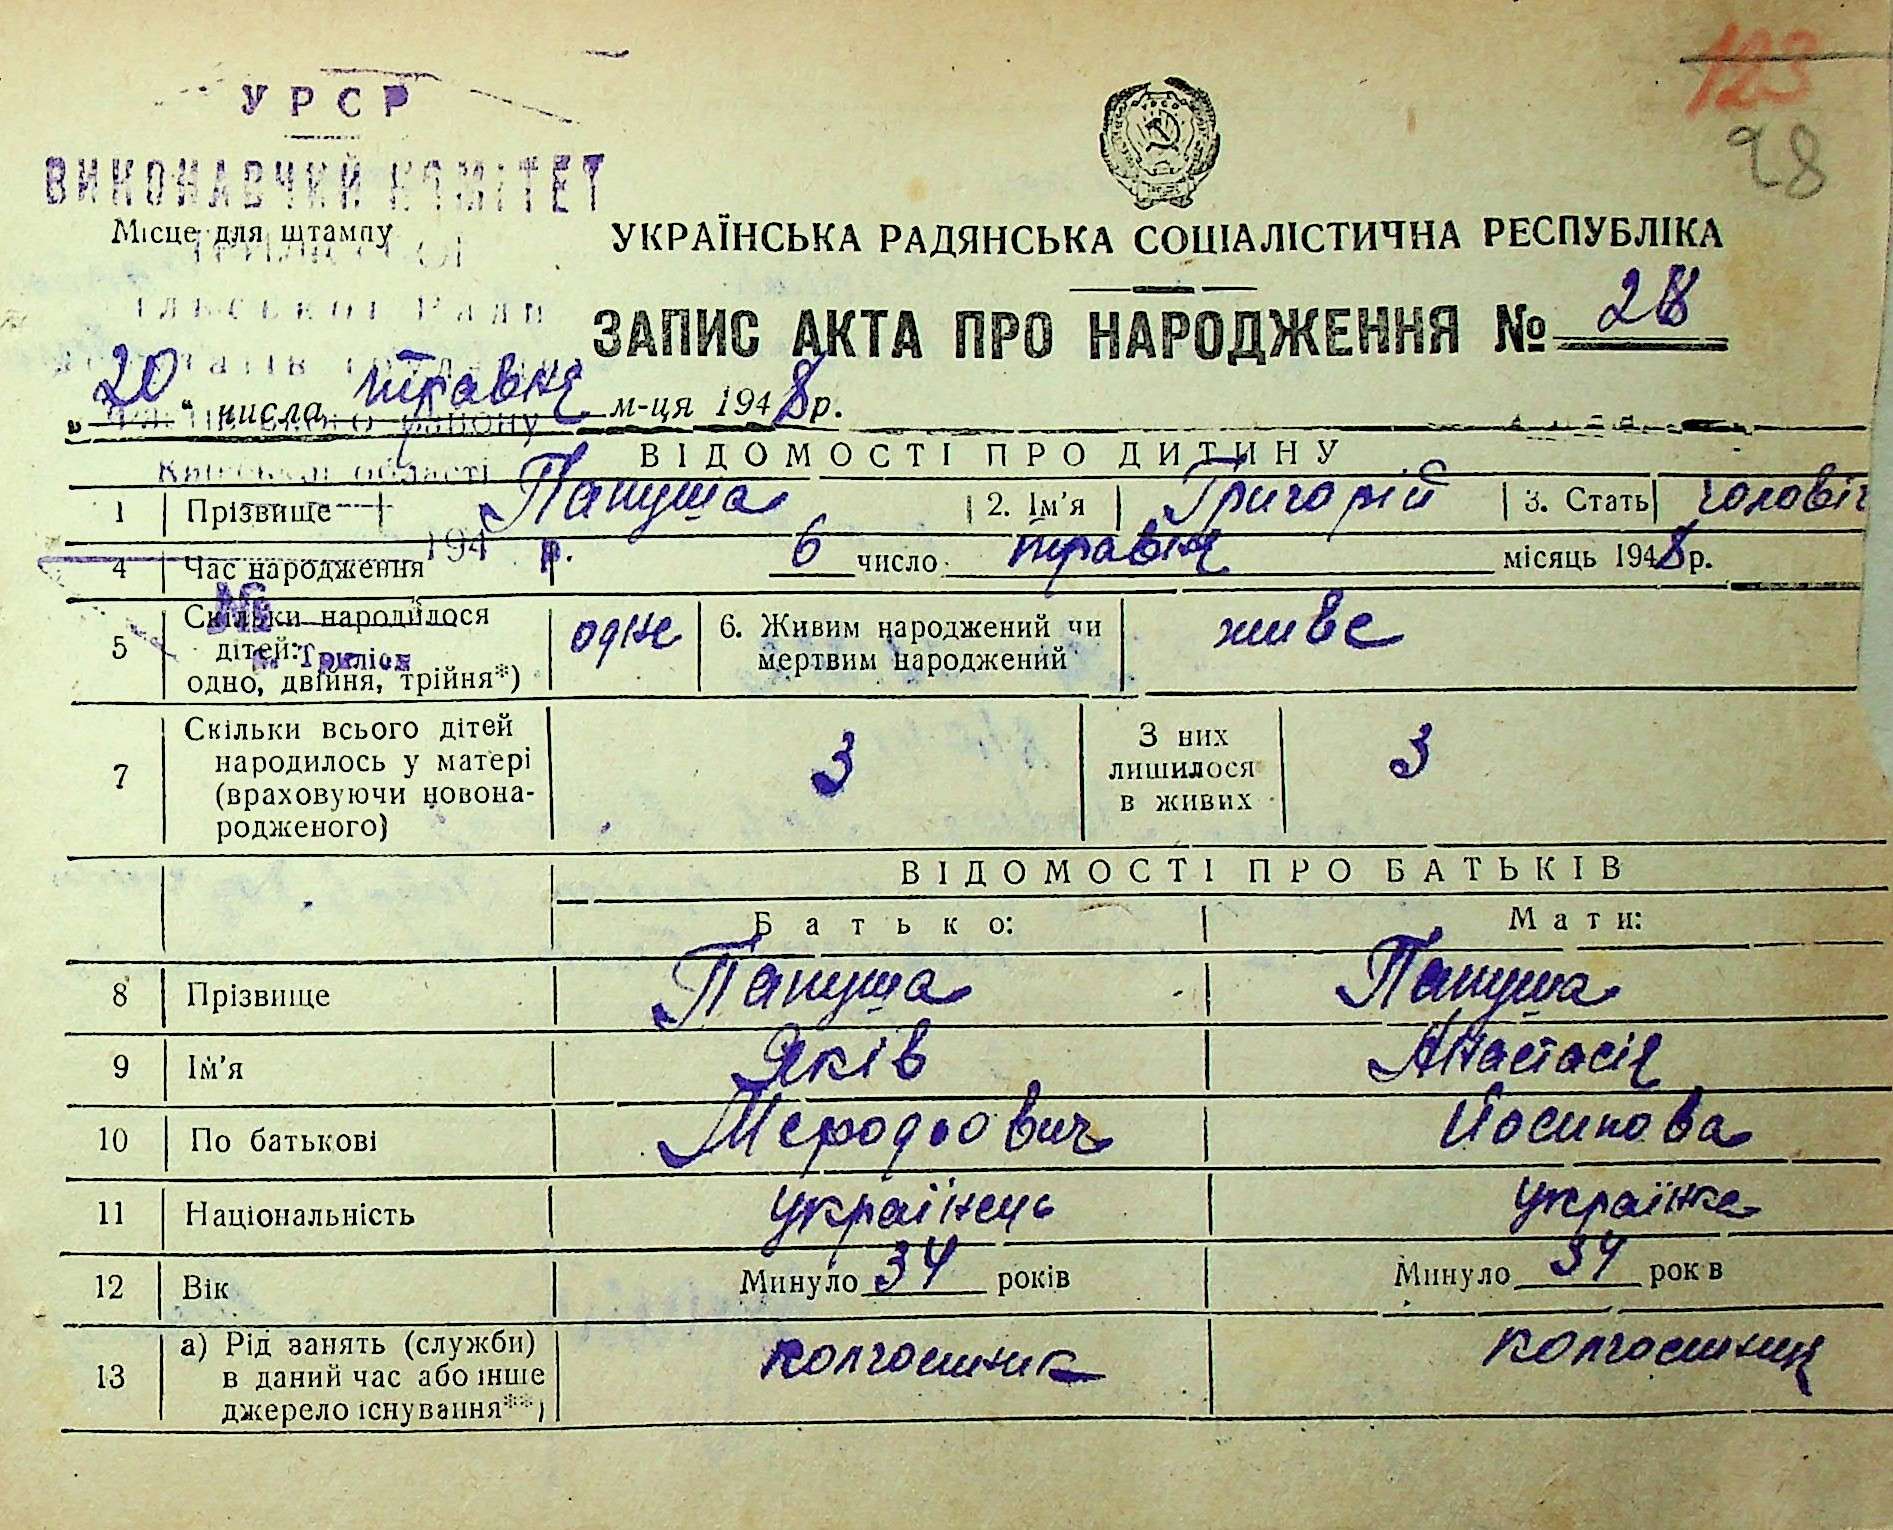 123
28
УРСР
ВИКОНАВЧИЙ КОМІТЕТ
Місце для штампу
УКРАЇНСЬКА РАДЯНСЬКА СОЦІАЛІСТИЧНА РЕСПУБЛІКА
Ради
ЗАПИС АКТА ПРО НАРОДЖЕННЯ № 28
„20“ числа травня м-ця 1948 р.
району
ВІДОМОСТІ ПРО ДИТИНУ
Київської області
1 Прізвище Папуша 2. Ім'я Григорій 3. Стать чоловіч
194 р.
4 Час народження 6 число травня місяць 1948 р.
№
5 Скільки народилося дітей: одно, двійня, трійня*) одне 6. Живим народжений чи мертвим народжений живе
с. Триліси
7 Скільки всього дітей народилось у матері (враховуючи новонародженого) 3 З них лишилося в живих 3
ВІДОМОСТІ ПРО БАТЬКІВ
Батько: Мати:
8 Прізвище Папуша Папуша
9 Ім'я Яків Анастасія
10 По батькові Мефодьович Йосипова
11 Національність українець українка
12 Вік Минуло 34 років Минуло 34 рок в
13 а) Рід занять (служби) в даний час або інше джерело існування**) колгоспник колгоспниця